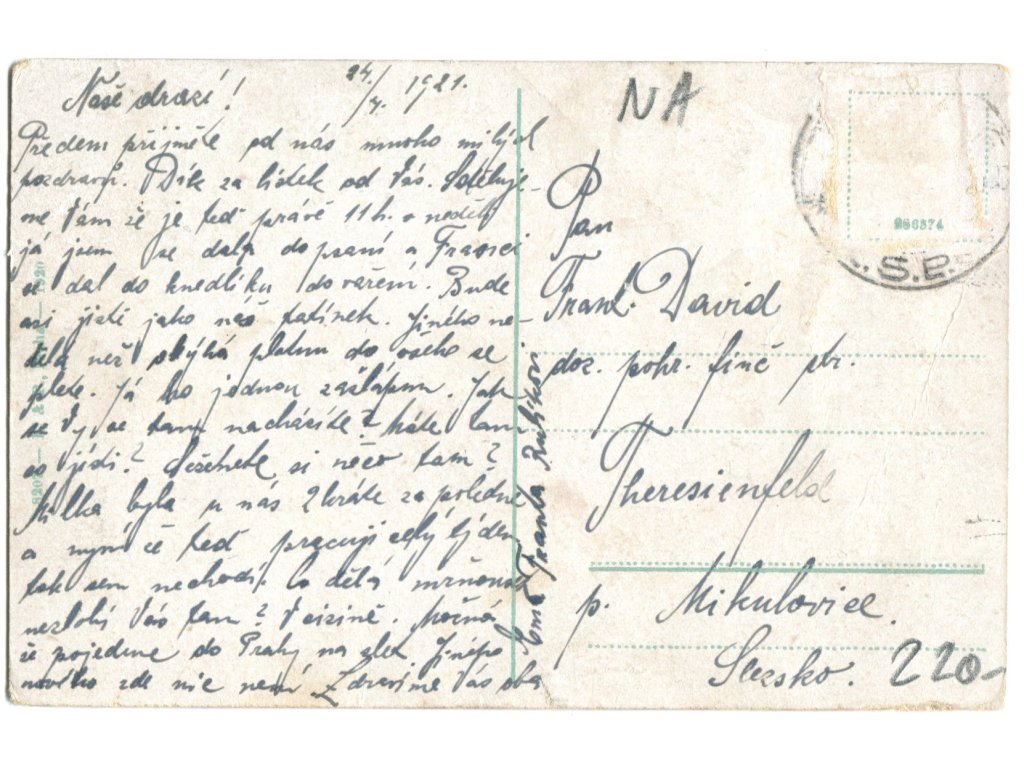 24./7. 1921.
Naše drazí!
Předem přijměte od nás mnoho milých
pozdravů. Dík za lístek od Vás. Sděluje-
me Vám že je teď právě 11 h. v neděli
já jsem se dala do praní a Franci
se dal do knedlíku do vaření. Bude
asi jistě jako náš tatínek. Jiného ne-
dělá než do všeho se
plete. Já ho jednou zašlápnu. Jak
se Vy se tam nacházíte? Máte tam
co jísti? Seženete si něco tam?
Milka byla u nás 2 kráte za poledne
a nyní če teď pracují celý týden
tak sem nechodí. Co dělá
nezlobí Vás tam? V cizině. Možná
že pojedeme do Prahy na slet. Jiného
nového zde nic není Zdravíme Vás oba
Franta
NA
S.P.
986374
Pan
Frant. David
doz. pohr. finč str.
Theresienfeld
p. Mikulovice.
Slezsko.
220-